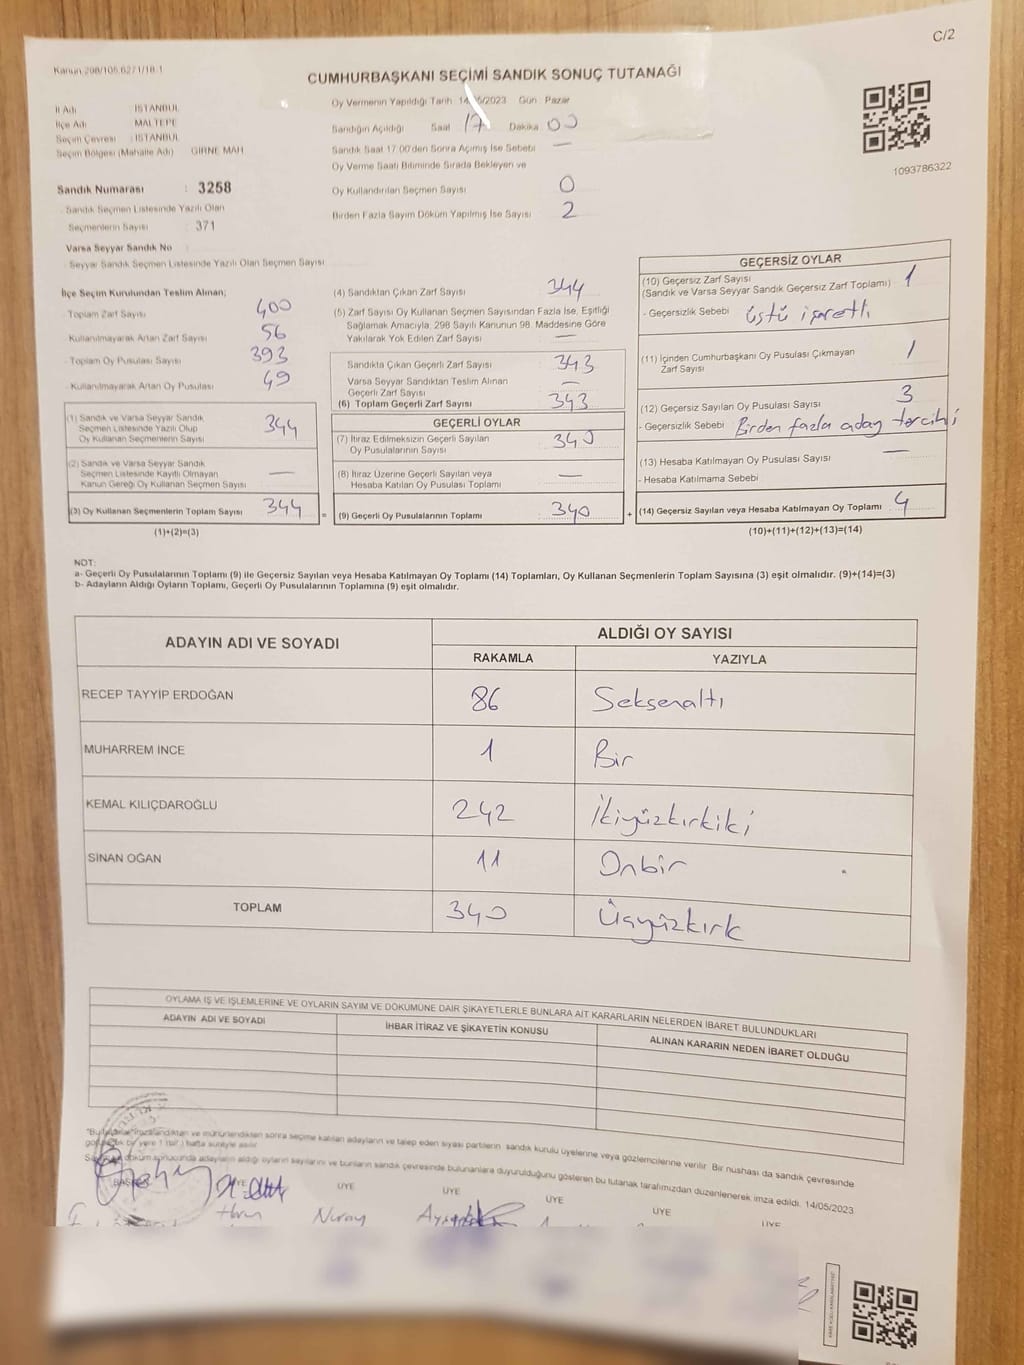 C/2
Kanun 298/105.627 1/18-1
CUMHURBAŞKANI SEÇİMİ SANDIK SONUÇ TUTANAĞI
İl Adı : İSTANBUL
İlçe Adı : MALTEPE
Seçim Çevresi : İSTANBUL
Seçim Bölgesi (Mahalle Adı) GİRNE MAH
Sandık Numarası : 3258
- Sandık Seçmen Listesinde Yazılı Olan
Seçmenlerin Sayısı : 371
Varsa Seyyar Sandık No
- Seyyar Sandık Seçmen Listesinde Yazılı Olan Seçmen Sayısı
Oy Vermenin Yapıldığı Tarih 14/05/2023 Gün : Pazar
Sandığın Açıldığı Saat 17 Dakika 00
Sandık Saat 17:00'den Sonra Açımış İse Sebebi —
Oy Verme Saati Bitiminde Sırada Bekleyen ve
Oy Kullandırılan Seçmen Sayısı 0
Birden Fazla Sayım Döküm Yapılmış İse Sayısı 2
1093786322
İlçe Seçim Kurulundan Teslim Alınan;
- Toplam Zarf Sayısı 400
- Kullanılmayarak Artan Zarf Sayısı 56
- Toplam Oy Pusulası Sayısı 393
- Kullanılmayarak Artan Oy Pusulası 49
(1) Sandık ve Varsa Seyyar Sandık
Seçmen Listesinde Yazılı Olup
Oy Kullanan Seçmenlerin Sayısı 344
(2) Sandık ve Varsa Seyyar Sandık
Seçmen Listesinde Kayıtlı Olmayan
Kanun Gereği Oy Kullanan Seçmen Sayısı —
(3) Oy Kullanan Seçmenlerin Toplam Sayısı 344 =
(1)+(2)=(3)
(4) Sandıktan Çıkan Zarf Sayısı 344
(5) Zarf Sayısı Oy Kullanan Seçmen Sayısından Fazla İse, Eşitliği
Sağlamak Amacıyla, 298 Sayılı Kanunun 98. Maddesine Göre
Yakılarak Yok Edilen Zarf Sayısı —
Sandıkta Çıkan Geçerli Zarf Sayısı 343
Varsa Seyyar Sandıktan Teslim Alınan
Geçerli Zarf Sayısı —
(6) Toplam Geçerli Zarf Sayısı 343
GEÇERLİ OYLAR
(7) İtiraz Edilmeksizin Geçerli Sayılan
Oy Pusulalarının Sayısı 340
(8) İtiraz Üzerine Geçerli Sayılan veya
Hesaba Katılan Oy Pusulası Toplamı —
(9) Geçerli Oy Pusulalarının Toplamı : 340 +
GEÇERSİZ OYLAR
(10) Geçersiz Zarf Sayısı
(Sandık ve Varsa Seyyar Sandık Geçersiz Zarf Toplamı) 1
- Geçersizlik Sebebi üstü işaretli
(11) İçinden Cumhurbaşkanı Oy Pusulası Çıkmayan
Zarf Sayısı 1
(12) Geçersiz Sayılan Oy Pusulası Sayısı 3
- Geçersizlik Sebebi Birden fazla aday tercihi
(13) Hesaba Katılmayan Oy Pusulası Sayısı —
- Hesaba Katılmama Sebebi
(14) Geçersiz Sayılan veya Hesaba Katılmayan Oy Toplamı 4
(10)+(11)+(12)+(13)=(14)
NOT:
a- Geçerli Oy Pusulalarının Toplamı (9) ile Geçersiz Sayılan veya Hesaba Katılmayan Oy Toplamı (14) Toplamları, Oy Kullanan Seçmenlerin Toplam Sayısına (3) eşit olmalıdır. (9)+(14)=(3)
b- Adayların Aldığı Oyların Toplamı, Geçerli Oy Pusulalarının Toplamına (9) eşit olmalıdır.
ADAYIN ADI VE SOYADI ALDIĞI OY SAYISI
RAKAMLA YAZIYLA
RECEP TAYYİP ERDOĞAN 86 Seksenaltı
MUHARREM İNCE 1 Bir
KEMAL KILIÇDAROĞLU 242 İkiyüzkırkiki
SİNAN OĞAN 11 Onbir
TOPLAM 340 Üçyüzkırk
OYLAMA İŞ VE İŞLEMLERİNE VE OYLARIN SAYIM VE DÖKÜMÜNE DAİR ŞİKAYETLERLE BUNLARA AİT KARARLARIN NELERDEN İBARET BULUNDUKLARI
ADAYIN ADI VE SOYADI İHBAR İTİRAZ VE ŞİKAYETİN KONUSU ALINAN KARARIN NEDEN İBARET OLDUĞU
imzalandıktan ve mühürlendikten sonra seçime katılan adayların ve talep eden siyasi partilerin sandık kurulu üyelerine veya gözlemcilerine verilir. Bir nüshası da sandık çevresinde
bir yere 1 (bir) hafta süreyle asılır.
döküm sonucunda adayların aldığı oyların sayılarını ve bunların sandık çevresinde bulunanlara duyurulduğunu gösteren bu tutanak tarafımızdan düzenlenerek imza edildi. 14/05/2023
BAŞKAN ÜYE ÜYE ÜYE ÜYE ÜYE ÜYE
Nuray